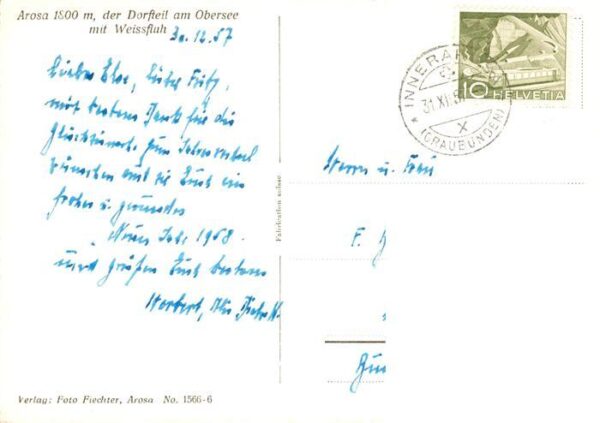 Arosa 1800 m, der Dorfteil am Obersee
mit Weissfluh
30.12.57
Liebe Else, Lieber Fritz,
mit bestem Dank für die
Glückwünsche zum Jahreswechsel
wünschen wir Euch ein
frohes u. gesundes
Neues Jahr 1958
und grüßen Euch bestens
Norbert,
Verlag: Foto Fiechter, Arosa No. 1566-6
Fabrication suisse
INNERAROSA
31.XII.5
(GRAUBÜNDEN)
10 HELVETIA
Herrn u. Frau
F.